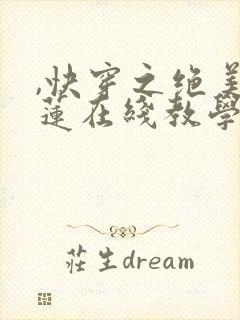 ,快穿之绝美
莲在线教学
莊生dream